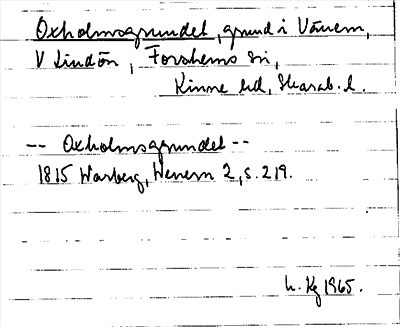 Oxholmsgrundet, grund i Vänern,
V Lindön, Forshems sn,
Kinne hd, Skarab. l.
-- Oxholmsgrundet --
1815 Warberg, Wenern 2, s. 219.
h. Kg 1965.